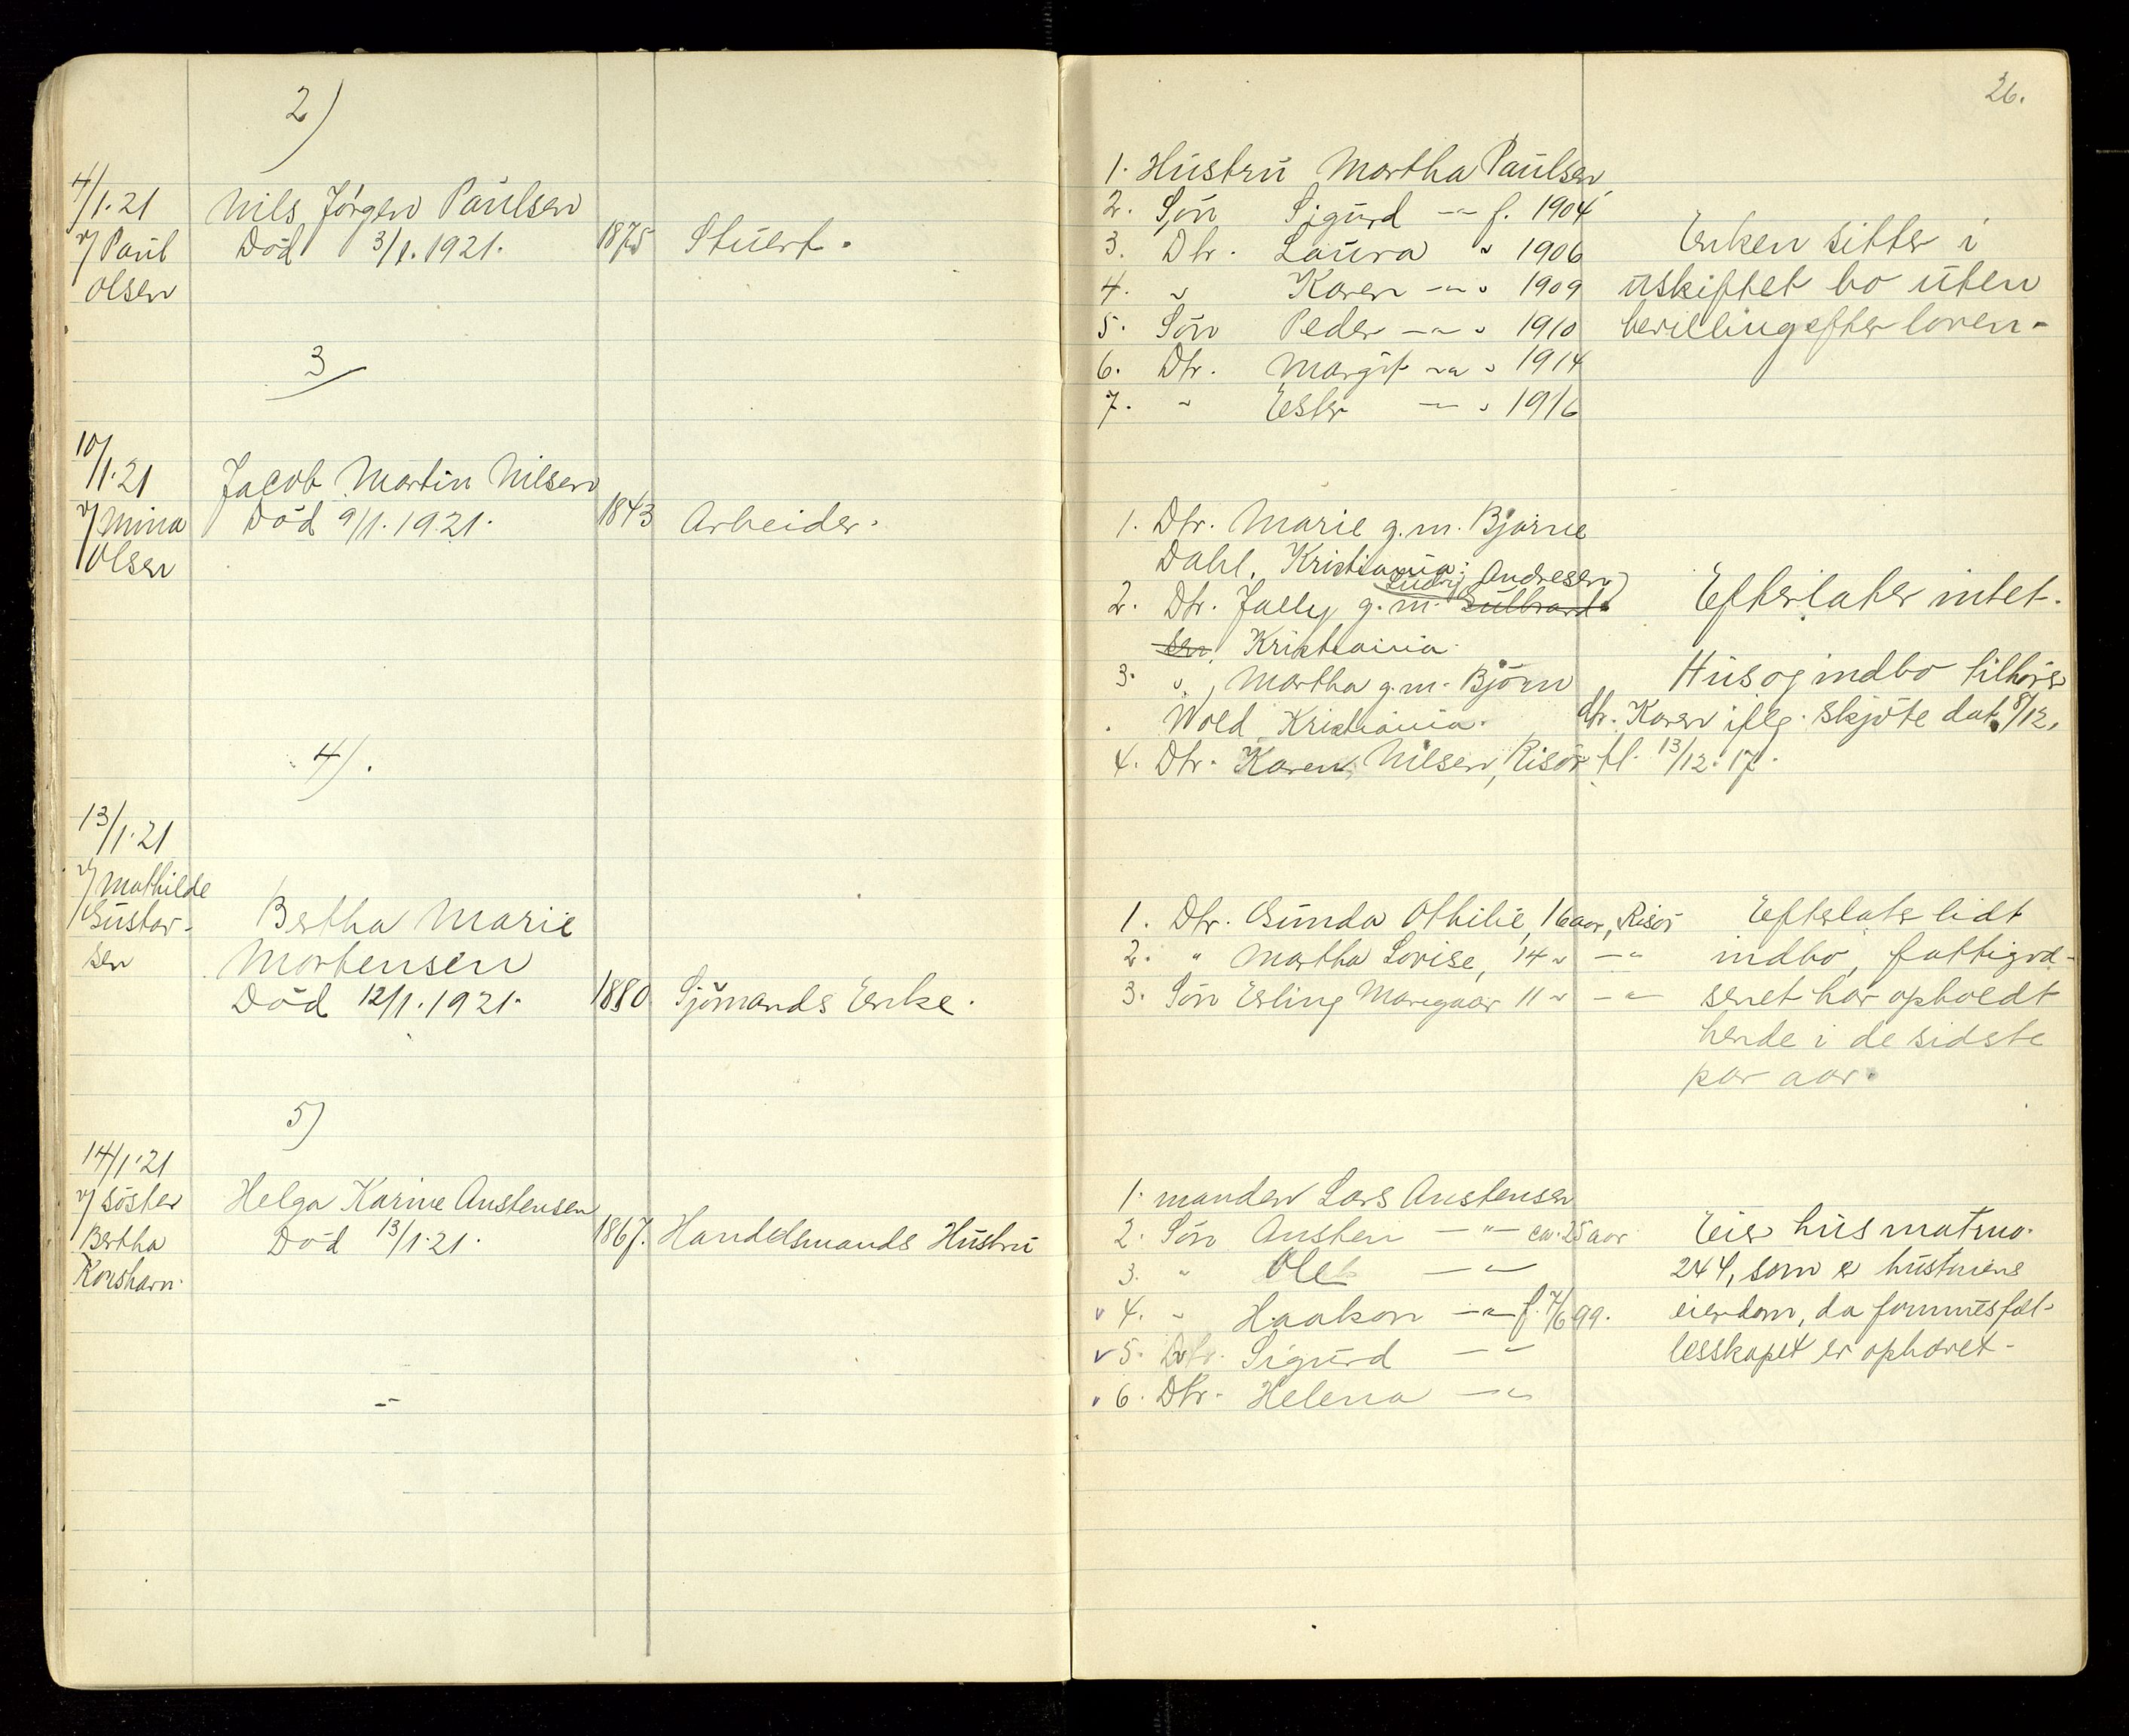 26.
2)
4/1.21
v/ Paul
Olsen
Nils Jörgen Paulsen
Död 3/1.1921.
1875
Stuert.
1. Hustru Martha Paulsen
2. Sön Sigurd —"— f. 1904
3. Dtr. Laura " 1906
4. " Karen —"— " 1909
5. Sön Peder —"— " 1910
6. Dtr. Margit —"— " 1914
7. " Ester —"— " 1916
Enken sitter i
uskiftet bo uten
bevilling efter loven-
3
10/1.21
v/ Mina
Olsen
Jacob Martin Nilsen
Död 9/1.1921.
1843
Arbeider.
1. Dtr. Marie g.m. Bjarne
Dahl, Kristiania:
Ludvig Andresen
2. Dtr. Jally g.m. Gulbrand-
sen, Kristiania.
3. ", Martha g.m. Björn
Wold Kristiania.
4. Dtr. Karen Nilsen, Risör
Efterlater intet.
Hus og indbo tilhörer
dtr. Karen iflg. Skjöte dat. 8/12,
tl. 13/12.17.
4).
13/1.21
v/ Mathilde
Gustav-
sen
Bertha Marie
Mortensen
Död 12/1.1921.
1880
Sjömands Enke.
1. Dtr. Gunda Othilie, 16 aar, Risör
2. " Martha Lovise, 14 " —"—
3. Sön Erling 11 " —"—
Efterlater lidt
indbo, fattigvæ-
senet har opholdt
hende i de sidste
par aar.
5)
14/1.21
v/ söster
Bertha
Korshavn.
Helga Karine Austensen
Död 13/1.21.
1867.
Handelsmands Hustru
1. manden Lars Austensen
2. Sön Austen —"— ca. 25 aar
3. " Ole —"—
v 4. " Haakon —"— f. 7/6 99.
v 5. Sigurd —"—
v 6. Dtr. Helena —"—
Eier hus matr.no.
244, som er hustruens
eiendom, da formuesfæl-
lesskapet er ophævet-